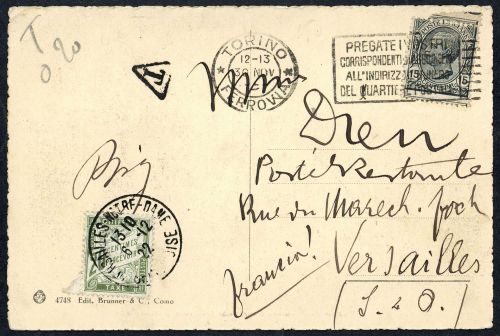 T
0,20
T
TORINO
12-13
30 NOV
FERROVIA
PREGATE I VOSTRI
CORRISPONDENTI
ALL'INDIRIZZO
DEL QUARTIERE
15 15
Dien
Poste Restante
Rue du Marech. Foch
Versailles
(S & O.)
Francia!
VERSAILLES NOTRE-DAME
13 10
6-12
22
CENTIMES
A PERCEVOIR
TAXE
4748 Edit. Brunner & C., Como